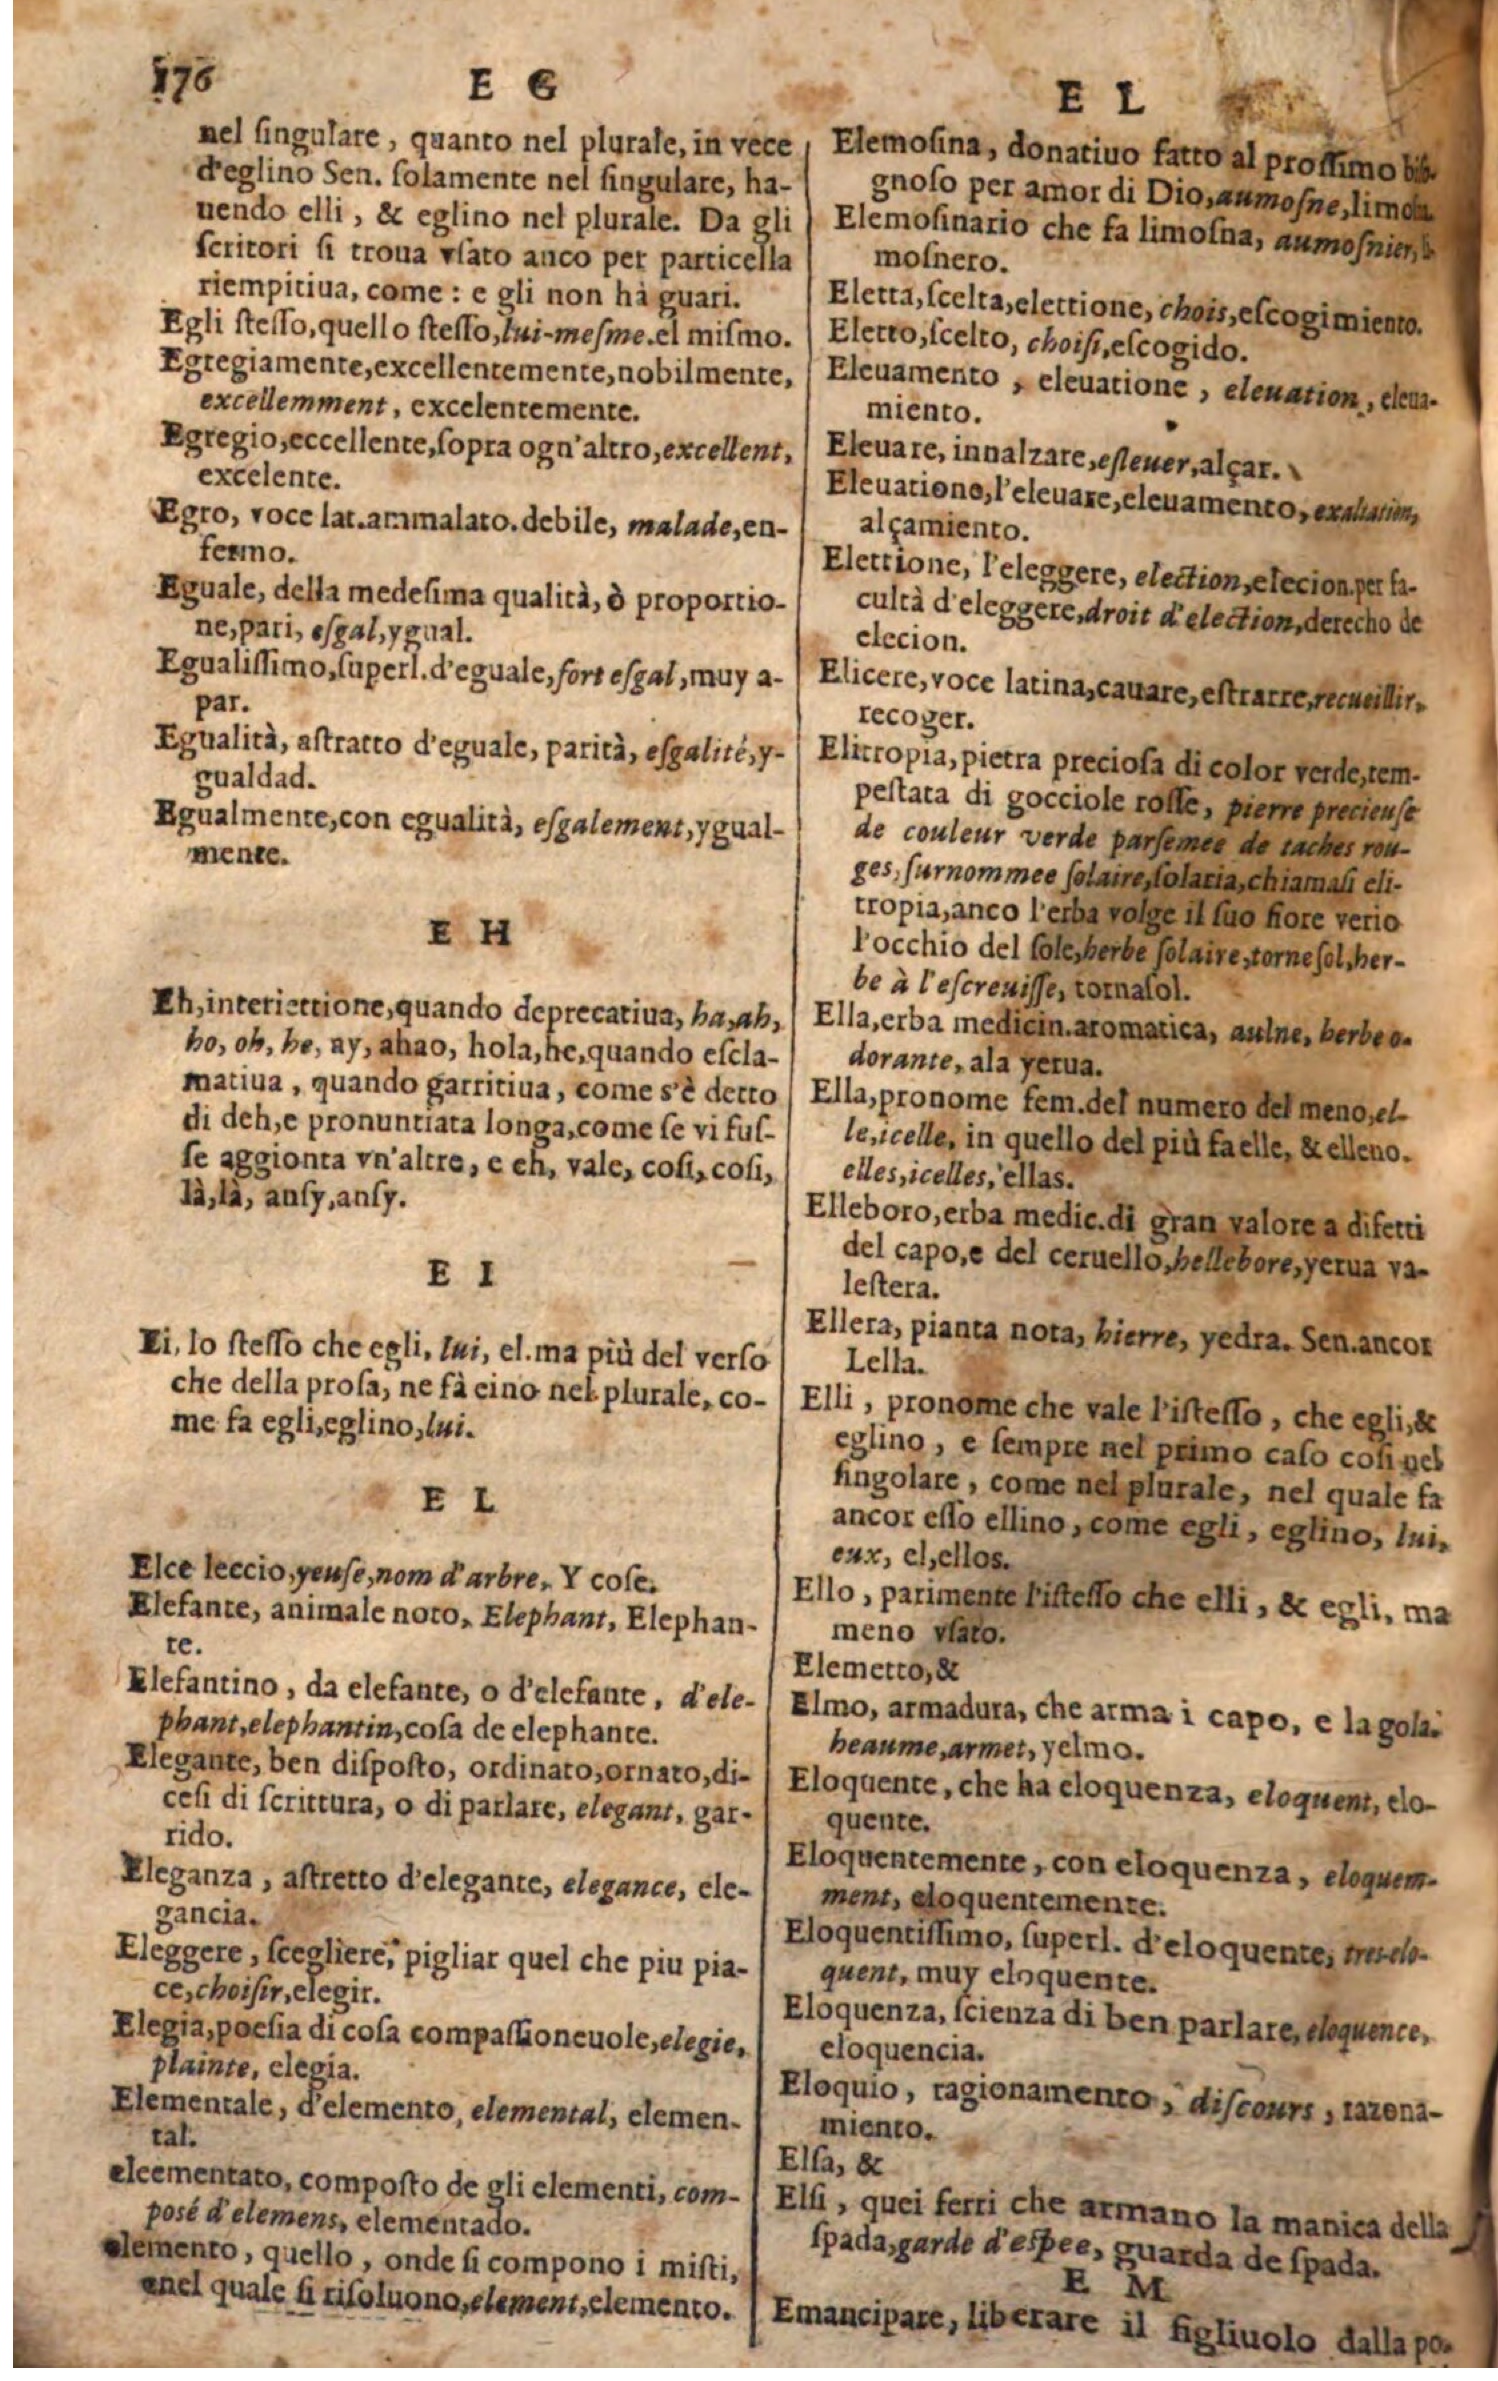 176
E G
nel ſingulare, quanto nel plurale, in vece
d'eglino Sen. ſolamente nel ſingulare, ha-
uendo elli, & eglino nel plurale. Da gli
ſcritori ſi troua vſato anco per particella
riempitiua, come: e gli non hà guari.
Egli ſteſſo, quello ſteſſo, lui-meſme. el miſmo.
Egregiamente, excellentemente, nobilmente,
excellemment, excelentemente.
Egregio, eccellente, ſopra ogn'altro, excellent,
excelente.
Egro, voce lat. ammalato. debile, malade, en-
fermo.
Eguale, della medeſima qualità, ò proportio-
ne, pari, eſgal, ygual.
Egualiſſimo, ſuperl. d'eguale, fort eſgal, muy a-
par.
Egualità, aſtratto d'eguale, parità, eſgalité, y-
gualdad.
Egualmente, con egualità, eſgalement, ygual-
mente.
E H
Eh, interiettione, quando deprecatiua, ha, ah,
ho, oh, he, ay, ahao, hola, he, quando eſcla-
matiua, quando garritiua, come s'è detto
di deh, e pronuntiata longa, come ſe vi fuſ-
ſe aggionta vn'altre, e eh, vale, coſi, coſi,
là, là, anſy, anſy.
E I
Ei, lo ſteſſo che egli, lui, el. ma più del verſo
che della proſa, ne fà eino nel plurale, co-
me fa egli, eglino, lui.
E L
Elce leccio, yeuſe, nom d'arbre, Y coſe.
Elefante, animale noto, Elephant, Elephan-
te.
Elefantino, da elefante, o d'elefante, d'ele-
phant, elephantin, coſa de elephante.
Elegante, ben diſpoſto, ordinato, ornato, di-
ceſi di ſcrittura, o di parlare, elegant, gar-
rido.
Eleganza, aſtretto d'elegante, elegance, ele-
gancia.
Eleggere, ſcegliere, pigliar quel che piu pia-
ce, choiſir, elegir.
Elegia, poeſia di coſa compaſſioneuole, elegie,
plainte, elegia.
Elementale, d'elemento, elemental, elemen-
tal.
eleementato, compoſto de gli elementi, com-
posé d'elemens, elementado.
elemento, quello, onde ſi compono i miſti,
enel quale ſi riſoluono, element, elemento.
E L
Elemoſina, donatiuo fatto al proſſimo biſo-
gnoſo per amor di Dio, aumoſne, limoſna.
Elemoſinario che fa limoſna, aumoſnier, li-
moſnero.
Eletta, ſcelta, elettione, chois, eſcogimiento.
Eletto, ſcelto, choiſi, eſcogido.
Eleuamento, eleuatione, eleuation, eleua-
miento.
Eleuare, innalzare, eſleuer, alçar.
Eleuatione, l'eleuare, eleuamento, exaltation,
alçamiento.
Elettione, l'eleggere, election, elecion. per fa-
cultà d'eleggere, droit d'election, derecho de
elecion.
Elicere, voce latina, cauare, eſtrarre, recueillir,
recoger.
Elitropia, pietra precioſa di color verde, tem-
peſtata di gocciole roſſe, pierre precieuſe
de couleur verde parſemee de taches rou-
ges, ſurnommee ſolaire, ſolaria, chiamaſi eli-
tropia, anco l'erba volge il ſuo fiore verſo
l'occhio del ſole, herbe ſolaire, torneſol, her-
be à l'eſcreuiſſe, tornaſol.
Ella, erba medicin. aromatica, aulne, herbe o-
dorante, ala yerua.
Ella, pronome fem. del numero del meno, el-
le, icelle, in quello del più fa elle, & elleno.
elles, icelles, ellas.
Elleboro, erba medic. di gran valore a difetti
del capo, e del ceruello, hellebore, yerua va-
leſtera.
Ellera, pianta nota, hierre, yedra. Sen. ancor
Lella.
Elli, pronome che vale l'iſteſſo, che egli, &
eglino, e ſempre nel primo caſo coſi nel
ſingolare, come nel plurale, nel quale fa
ancor eſſo ellino, come egli, eglino, lui,
eux, el, ellos.
Ello, parimente l'iſteſſo che elli, & egli, ma
meno vſato.
Elemetto, &
Elmo, armadura, che arma i capo, e la gola.
heaume, armet, yelmo.
Eloquente, che ha eloquenza, eloquent, elo-
quente.
Eloquentemente, con eloquenza, eloquem-
ment, eloquentemente.
Eloquentiſſimo, ſuperl. d'eloquente, tres-elo-
quent, muy eloquente.
Eloquenza, ſcienza di ben parlare, eloquence,
eloquencia.
Eloquio, ragionamento, diſcours, razona-
miento.
Elſa, &
Elſi, quei ferri che armano la manica della
ſpada, garde d'eſpee, guarda de ſpada.
E M
Emancipare, liberare il figliuolo dalla po-